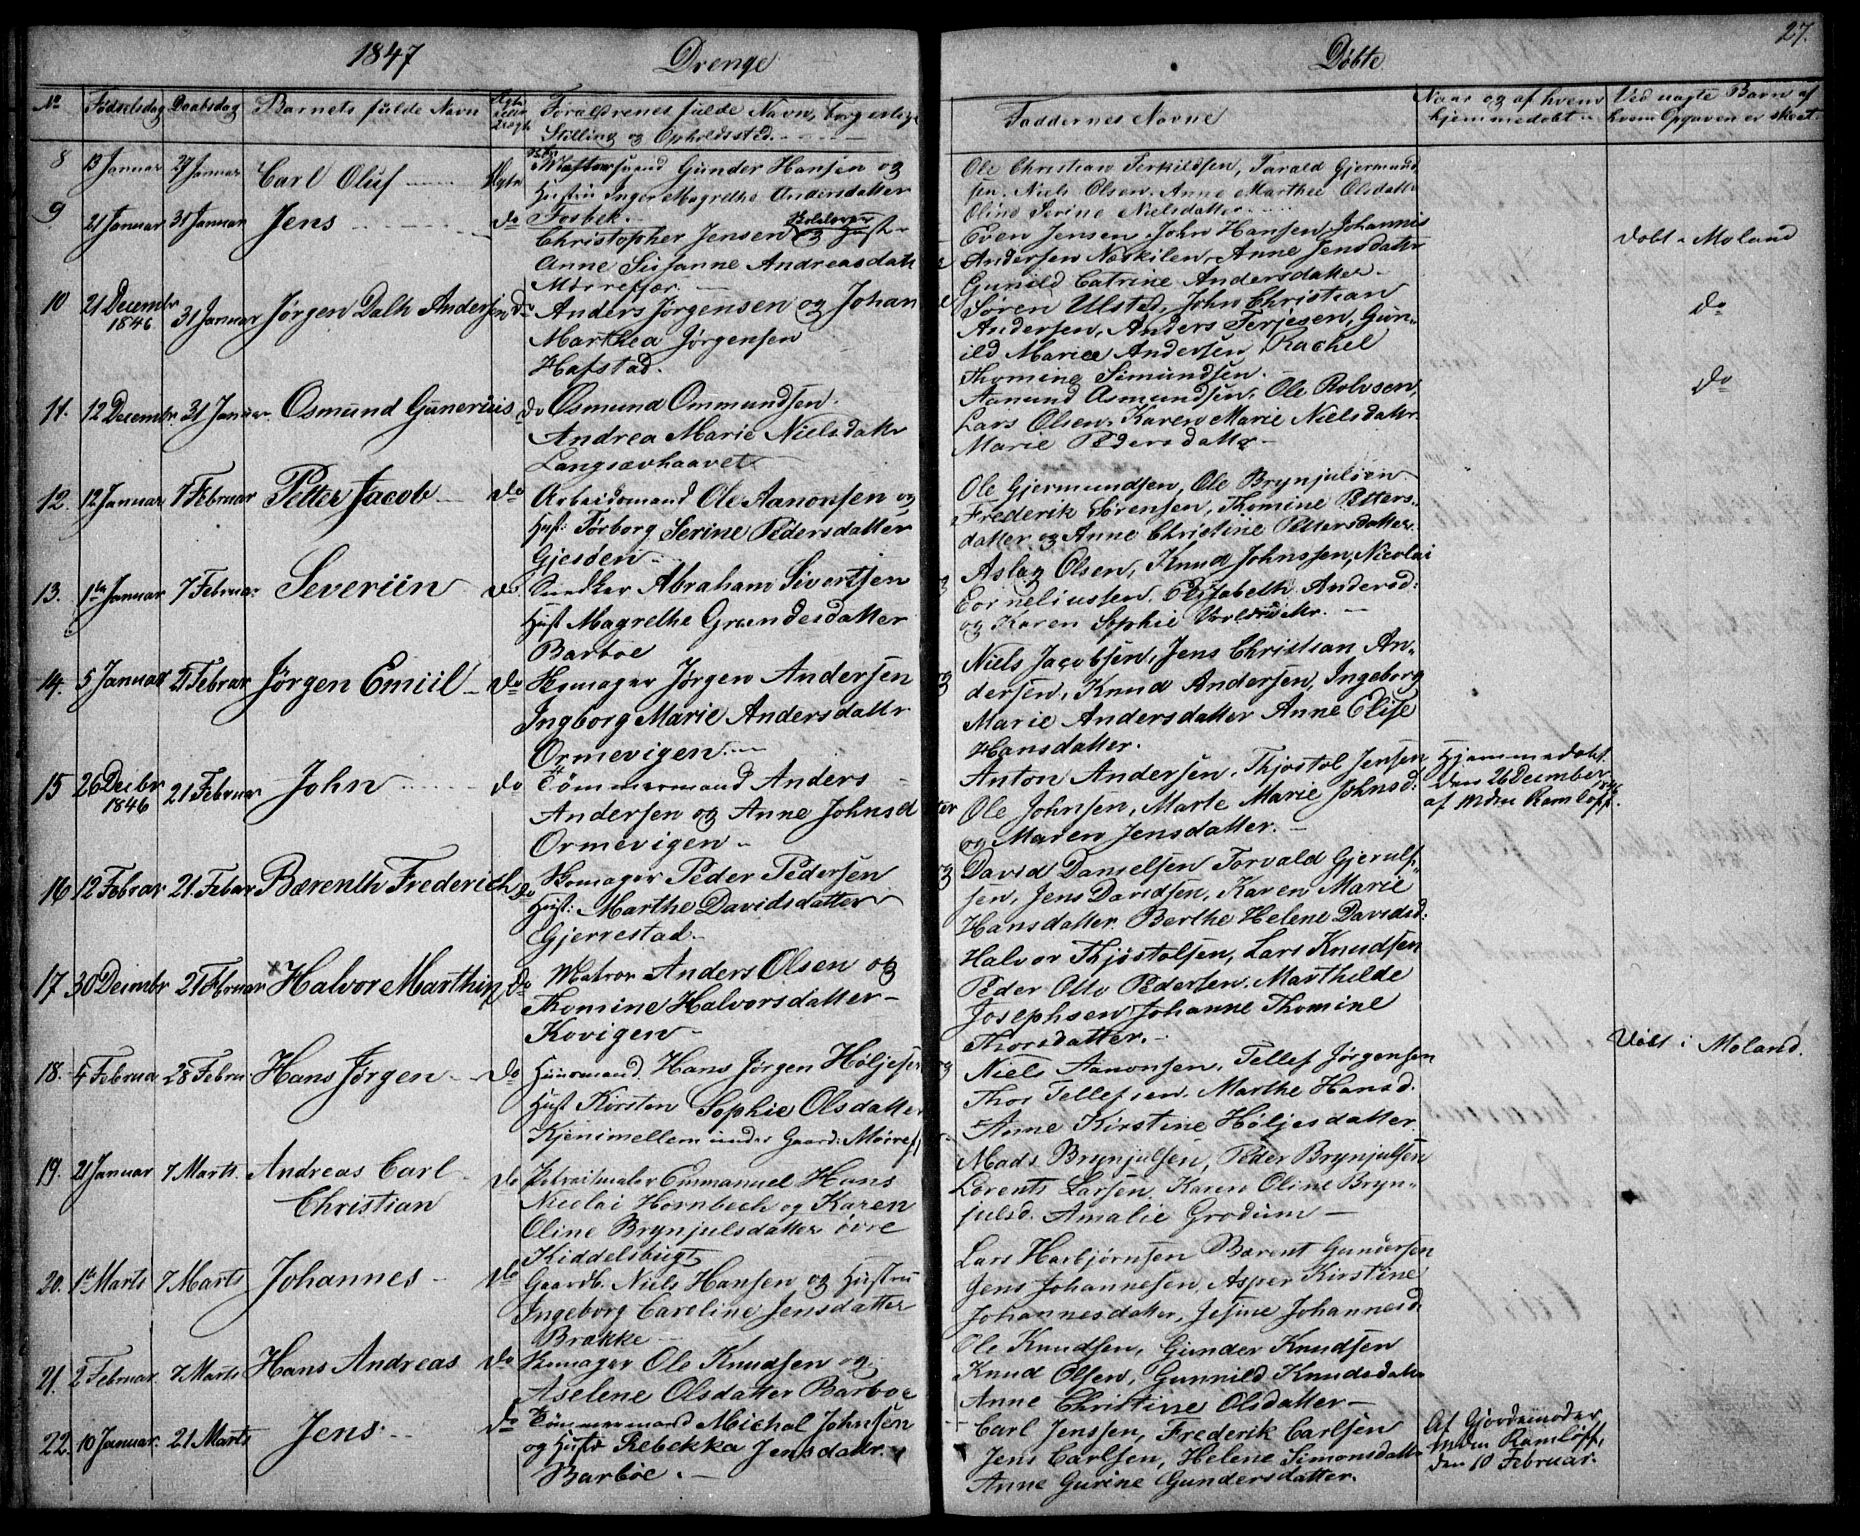 1847 Drenge
Døbte 27.
No Fødselsdag Daabsdag Barnets fulde Navn Ægte eller Uægte Forældrenes fulde Navn, borgerlige
Stilling og Opholdssted.
Faddernes Navne
Naar og af hvem
hjemmedøbt
Ved uægte Barn af
hvem Opgaven er skeet.
8 13 Januar 27 Januar Carl Oluf Ægte Gunder Hansen og
Hustru Inger Magrethe Andersdatter
Fosbek.
Ole Christian Terkildsen, Tarald Gjermund
sen. Niels Olsen. Anne Marthee Olsdatt
Oline Serine Nielsdatter.
9 21 Januar 31 Januar Jens do Christopher Jensen og Hust
Anne Susanne Andreasdatt
Mørrefjær.
Even Jensen, John Hansen, Johannis
Andersen Neskilen, Anne Jensdatter
Gunild Catrine Andersdatter
Døbt i Moland
10 21 Decembr 1846 31 Januar Jørgen Dalh Andersen do Anders Jørgensen og Johan
Marthea Jørgensen
Hafstad.
Søren Ulsted, John Christian
Andersen, Anders Terjesen, Gun-
ild Marice Andersen Rachel
Thomine Simundsen.
do
11. 12 Decembr 31 Januar Osmund Gunerius do Osmund Ommundsen.
Andrea Marie Nielsdattr
Langsævhaavet
Aanund Asmundsen, Ole Rolvsen,
Lars Olsen. Karen Marie Nielsdattr.
Marie Pedersdattr
do
12. 12 Januar 7 Februar Petter Jacob do Arbeidsmand Ole Aanonsen og
Hust: Tørborg Serine Pedersdatter
Gjesden
Ole Gjermundsen, Ole Brynjulsen
Frederik Sørensen, Thomine Petters-
datter og Anne Christine Pettersdatter.
13. 1te Januar 7 Februar Severiin do Snedker Abraham Sivertsen
Hust Magrethe Grundesdatter
Barboe
Aslag Olsen, Knud Johnssen, Nicolai
Corneliussen. Elisabeth Andersd:
og Karen Sophie
14. 5 Januar 21 Februar Jørgen Emiil do Skomager Jørgen Andersen
Ingborg Marie Andersdattr
Ormevigen.
Niels Jacobsen, Jens Christian An-
dersen, Knud Andersen, Ingeborg
Marie Andersdatter Anne Elise
Hansdatter.
15 26 Decbr 1846 21 Februar John do Tømmermand Anders
Andersen og Anne Johnsd
Ormevigen
Anton Andersen, Thjostol Jensen
Ole Johnsen, Marte Marie Johnsd:
og Maren Jensdatter.
Hjemmedøbt
den 26 December 1846
af Mdm Ramløff.
16 12 Februar 21 Februar Bærenth Frederich do Skomager Peder Pedersen
Hust: Marthe Davidsdatter
Gjerrestad
David Danielsen Torvald Gjerulf-
sen, Jens Davidsen, Karen Marie
Hansdatter. Berthe Helene Davidsd:
17 30 Decembr 21 Februar Halvor Marthin do Matros Anders Olsen og
Thomine Halvorsdatter
Kovigen
Halvor Thjostolsen, Lars Knudsen
Peder Otto Pedersen. Marthilde
Josephsen Johanne Thomine
Thorsdatter.
18. 4 Februar 28 Februar Hans Jørgen do Huusmand Hans Jørgen Høljesen
Hust Kirsten Sophie Olsdatter
Kjenimellem under Gaard: Mørrefj
Niels Aanonsen, Tellef Jørgensen
Thor Tellefsen. Marthe Hansd.
Anne Kirstine Høljesdatter
Døbt i Moland.
19. 21 Januar 7 Marts. Andreas Carl
Christian do Portraitmaler Emmanuel Hans
Nicolai Hornbech og Karen
Oline Brynjulsdatter øvre
Kiddelsbugt
Mads Brynjulsen, Peder Brynjulsen
Lorents Larsen. Karen Oline Bryn-
julsd. Amalie Grodum
20. 1te Marts 7 Marts Johannes do Gaardb. Niels Hansen og Hustru
Ingeborg Caroline Jensdatter
Brække
Lars Herbjørnsen Bærent Gundersen
Jens Johannesen, Asper Kirstine
Johannesdatter, Jesine Johannesd.
21. 2 Februar. 7 Marts Hans Andreas do Skomager Ole Knudsen og
Aselene Olsdatter Barboe
Ole Knudsen, Gunder Knudsen
Knud Olsen, Gunnild Knudsdatter
Anne Christine Olsdatter
22 10 Januar. 21 Marts Jens do Tømmermand Michal Johnsen
og Hustr Rebekka Jensdattr.
Barbøe.
Carl Jenssen, Frederik Carlsen
Jens Carlsen, Helene Simonsdatter
Anne Gurine Gundersdatter.
Af Gjordemoder
Mdm Ramløff,
den 10 Februar.